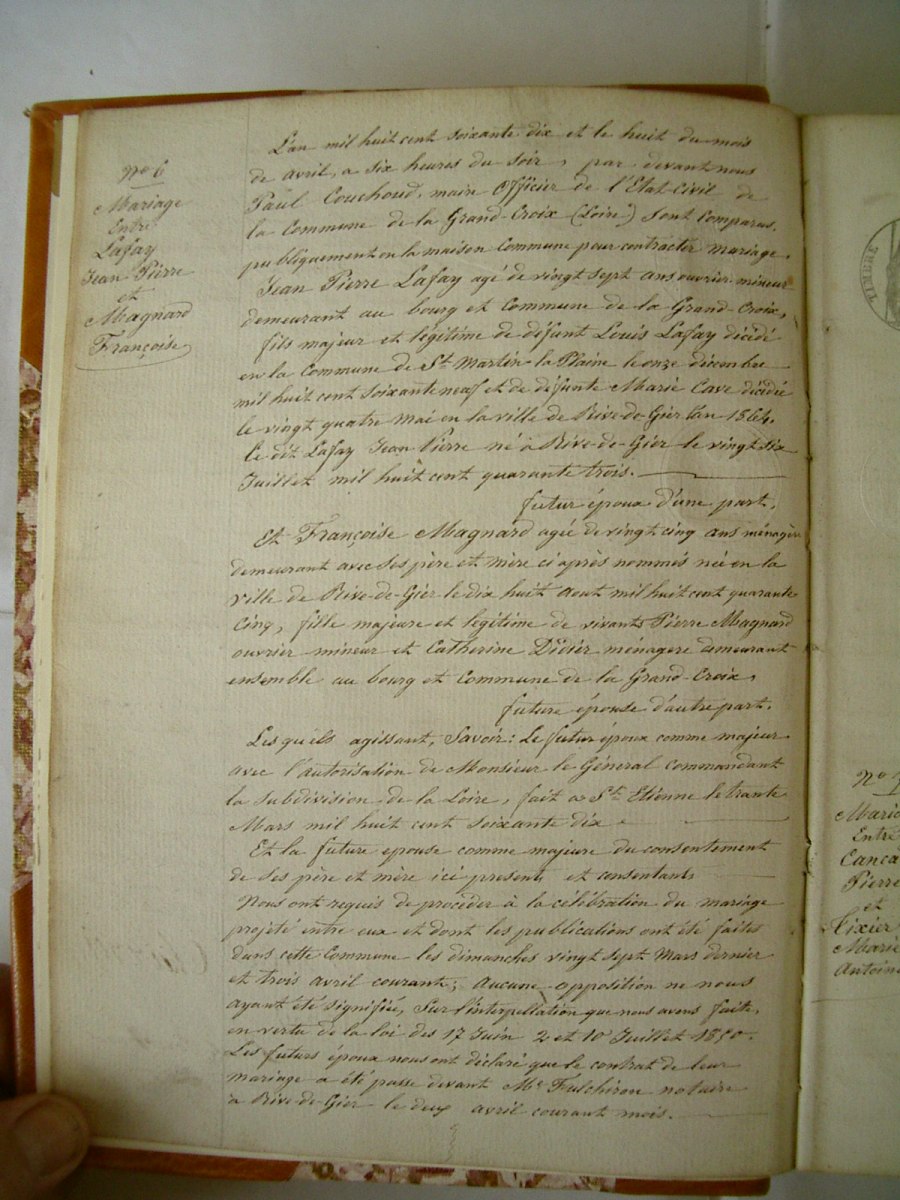 No 6
Mariage
Entre
Lafay
Jean Pierre
et
Magnard
Françoise
L'an mil huit cent soixante dix et le huit du mois
de avril, a six heures du soir, par devant nous
Paul Couchoud, maire Officier de l'Etat-Civil de
la Commune de la Grand-Croix (Loire) Sont Comparus,
publiquement en la maison Commune pour contracter mariage.
Jean Pierre Lafay agé de vingt sept ans ouvrier mineur
demeurant au bourg et Commune de la Grand-Croix,
fils majeur et légitime de défunt Louis Lafay décédé
en la Commune de St Martin-la-Plaine le onze décembre
mil huit cent soixante neuf et de défunte Marie Cave décédée
le vingt quatre Mai en la ville de Rive-de-Gier l'an 1864.
le dit Lafay Jean Pierre né à Rive-de-Gier le vingt six
Juillet mil huit cent quarante trois.
futur époux d'une part.
Et Françoise Magnard agée de vingt cinq ans ménagère
demeurant avec ses père et mère ci après nommés née en la
ville de Rive-de-Gier le dix huit Aout mil huit cent quarante
Cinq, fille majeure et légitime de vivants Pierre Magnard
ouvrier mineur et Catherine Didier ménagere demeurant
ensemble au bourg et Commune de la Grand-Croix,
future épouse d'autre part.
Lesquels agissant, Savoir: Le futur époux comme majeur
avec l'autorisation de Monsieur le Général commandant
la subdivision de la Loire, fait a St Etienne le trente
Mars mil huit cent soixante dix
Et la future epouse comme majeure du consentement
de ses père et mère ici presents et consentants
Nous ont requis de procéder à la célébration du mariage
projeté entre eux et dont les publications ont été faites
dans cette Commune les dimanches vingt sept Mars dernier
et trois avril courant; Aucune opposition ne nous
ayant été signifiée, Sur l'interpellation que nous avons faite,
en vertu de la loi des 17 Juin 2 et 10 Juillet 1850.
Les futurs époux nous ont déclaré que le contrat de leur
mariage a été passe devant Me Fulchiron notaire
a Rive-de-Gier le deux avril courant mois.
TIMBRE
No 7
Entre
Pierre
et